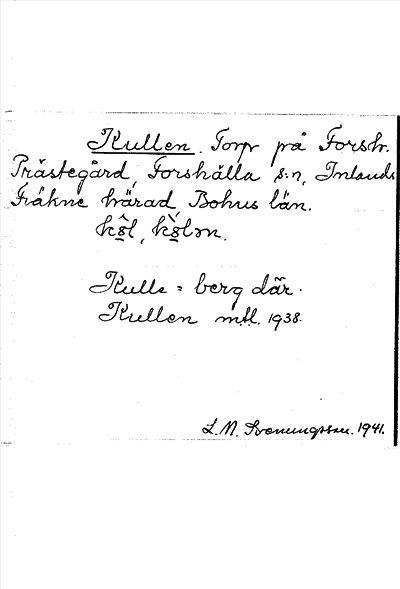 Kullen. Torp på Forsh.
Prästegård, Forshälla s:n, Inlands
Fräkne härad Bohus län.
Kulle = berg där.
Kullen mtl. 1938.
L. N. Svenungsson. 1941.